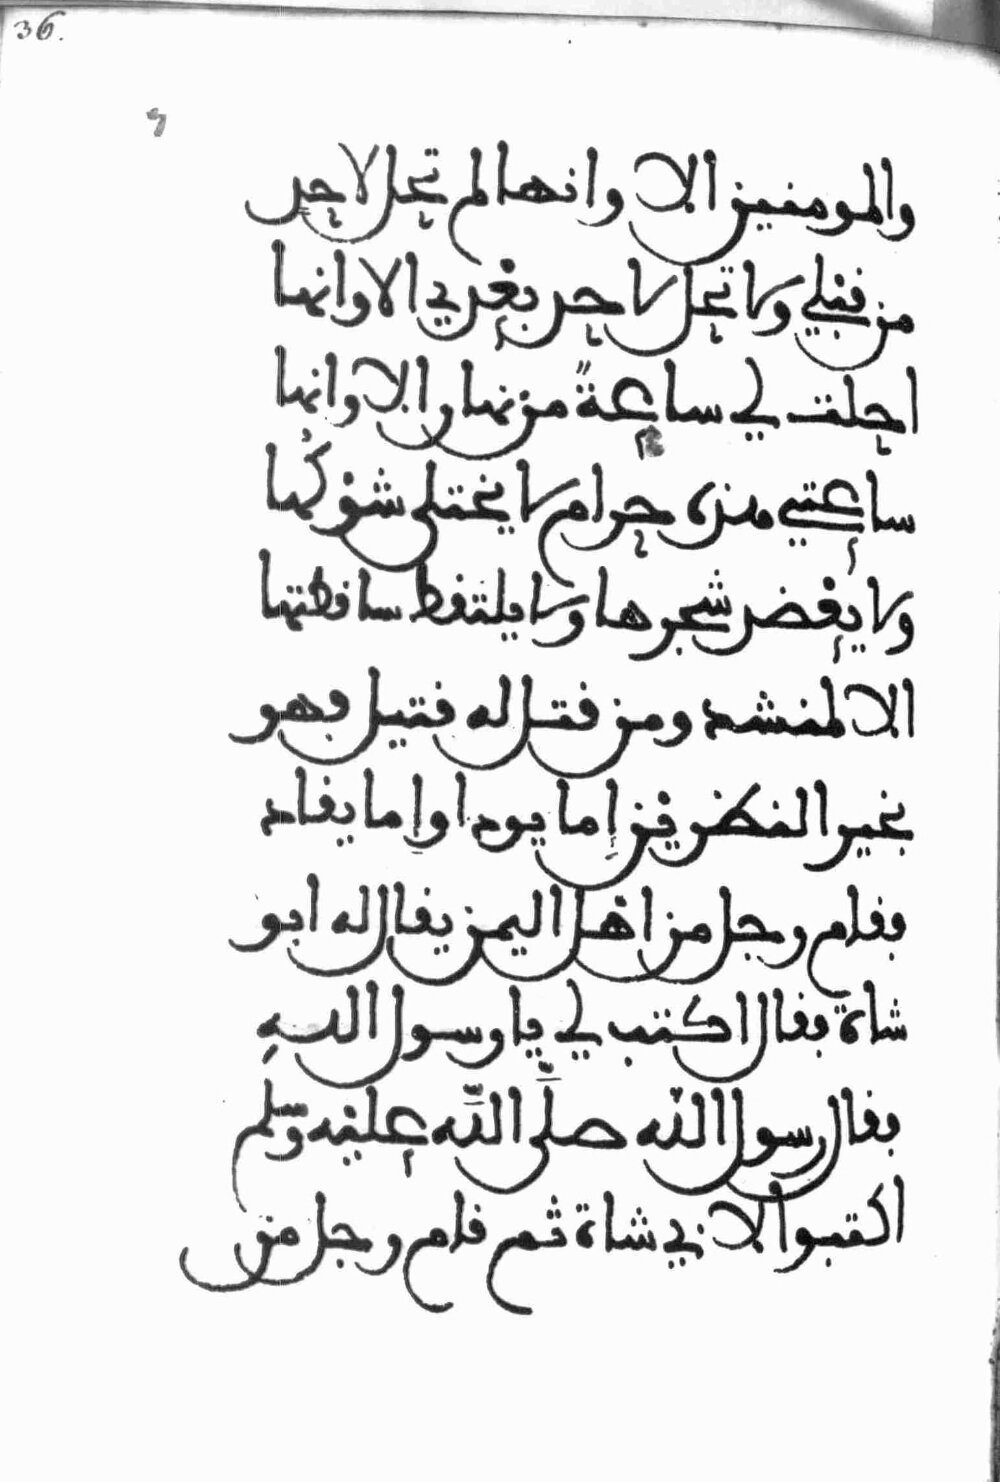 36.
والمومنين الا وانها لم تحل لاحد
من قبلي ولا تحل لاحد بعدي الا وانها
احلت لي ساعة من نهار الا وانها
ساعتي هذه حرام لا يختلى شوكها
ولا يعضد شجرها ولا يلتقط ساقطتها
الا لمنشد ومن قتل له قتيل فهو
بخير النظرين إما يودا وإما يقاد
فقام رجل من اهل اليمن يقال له ابو
شاة فقال اكتب لي يا رسول الله
فقال رسول الله صلى الله عليه وسلم
اكتبوا لابي شاة ثم قام رجل من